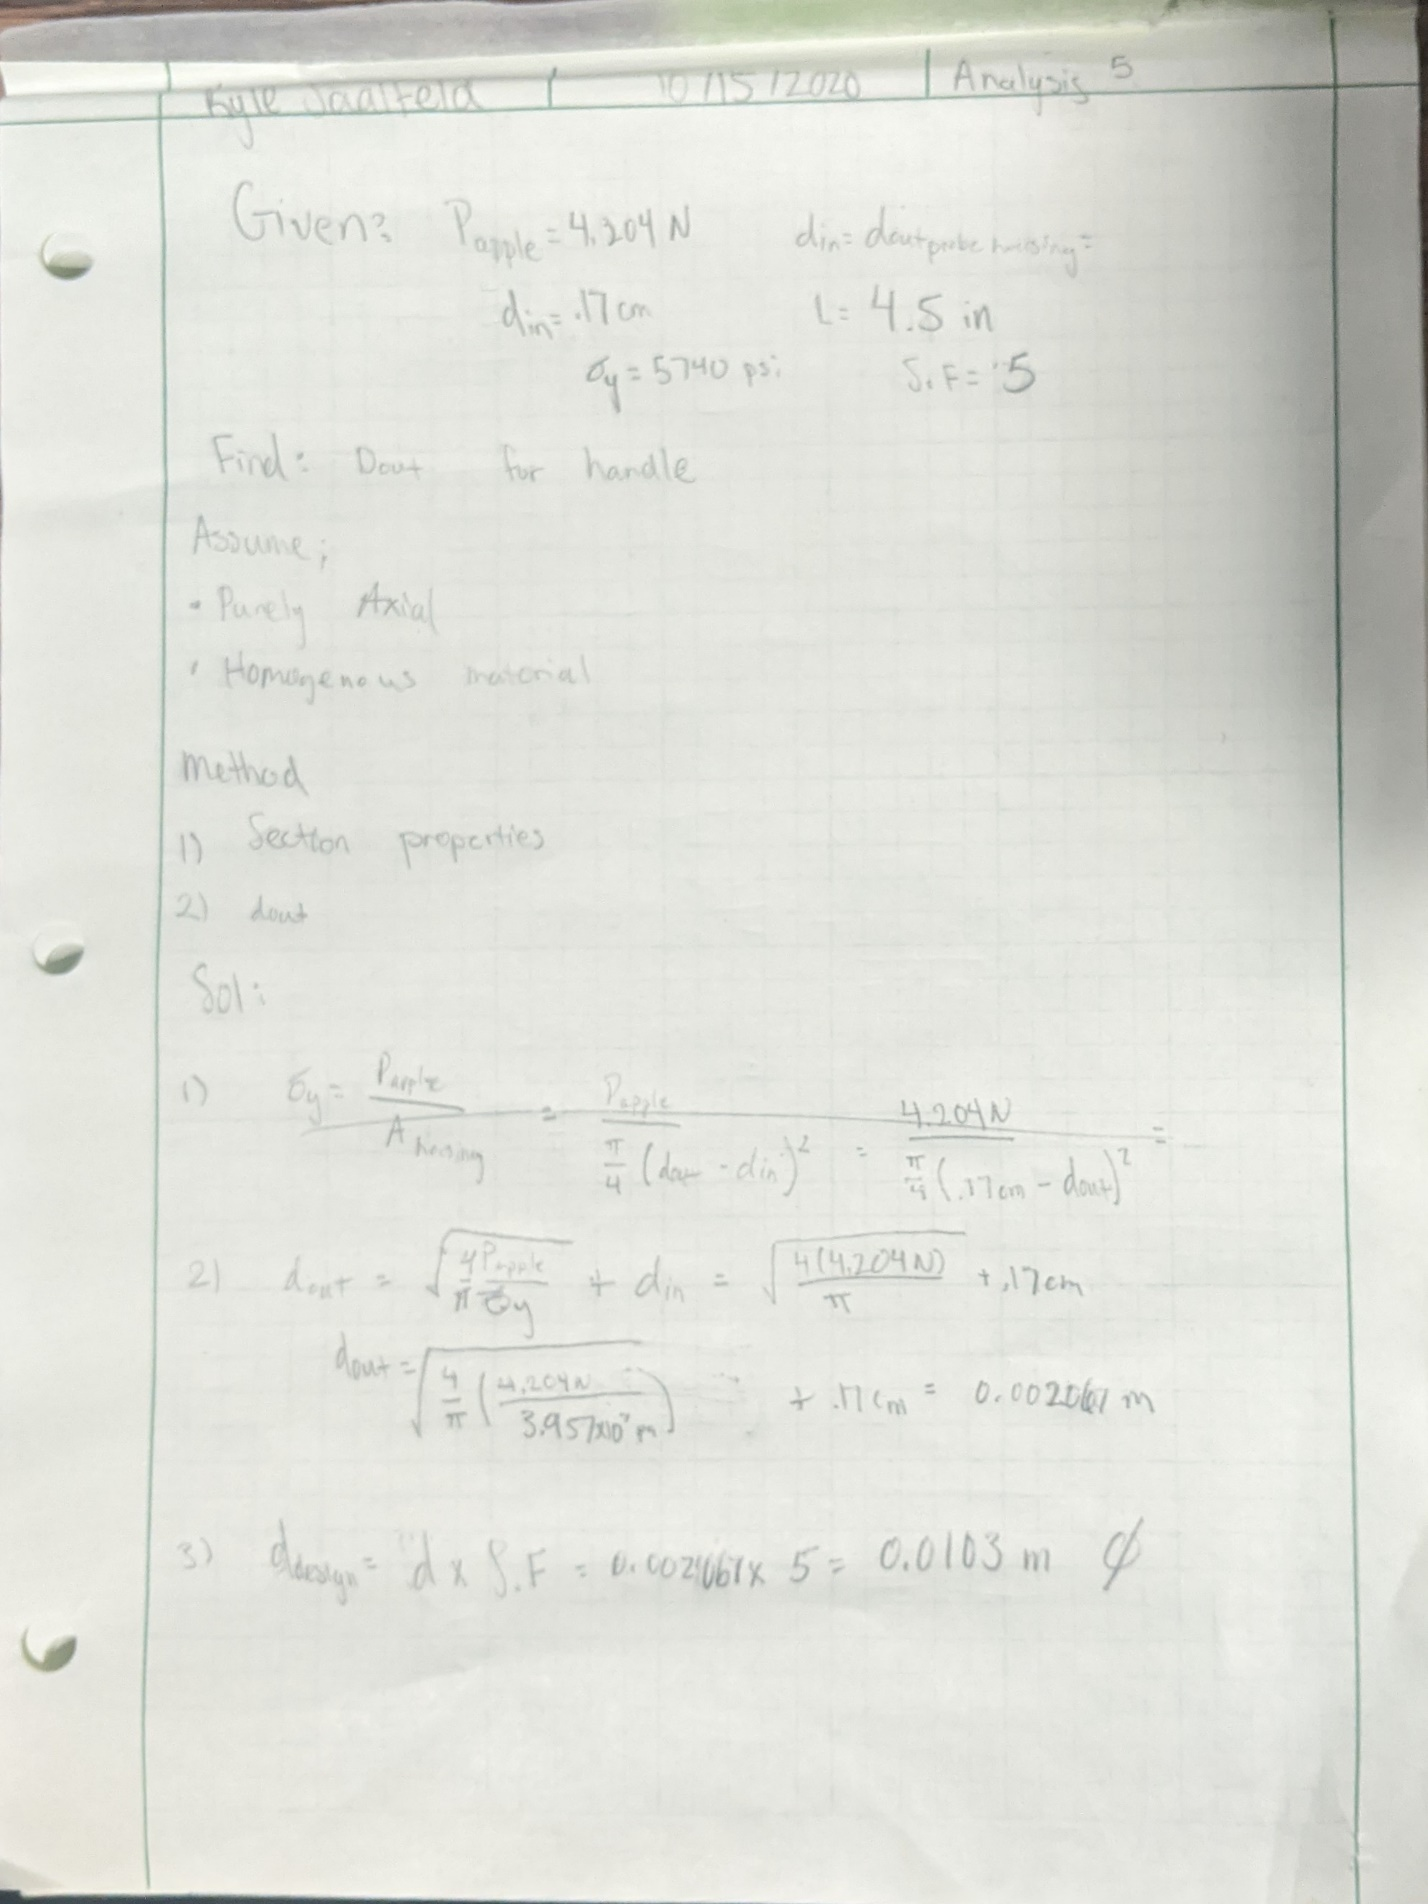 Kyle Saalfeld | 10/15/2020 | Analysis 5
Given: P_apple = 4.204 N   d_in = d_out probe housing =
d_in = .17 cm   L = 4.5 in
σ_y = 5740 psi   S.F = 5
Find: Dout for handle
Assume;
• Purely Axial
• Homogenous material
Method
1) Section properties
2) dout
Sol:
1) σ_y = P_apple / A_housing = P_apple / (π/4 (d_out - d_in)²) = 4.204 N / (π/4 (.17cm - d_out)²) =
2) d_out = √(4/π P_apple/σ_y) + d_in = √(4(4.204N)/π) + .17cm
d_out = √(4/π (4.204N / 3.957x10⁷ m)) + .17cm = 0.002067 m
3) d_design = d x S.F = 0.002067 x 5 = 0.0103 m ϕ